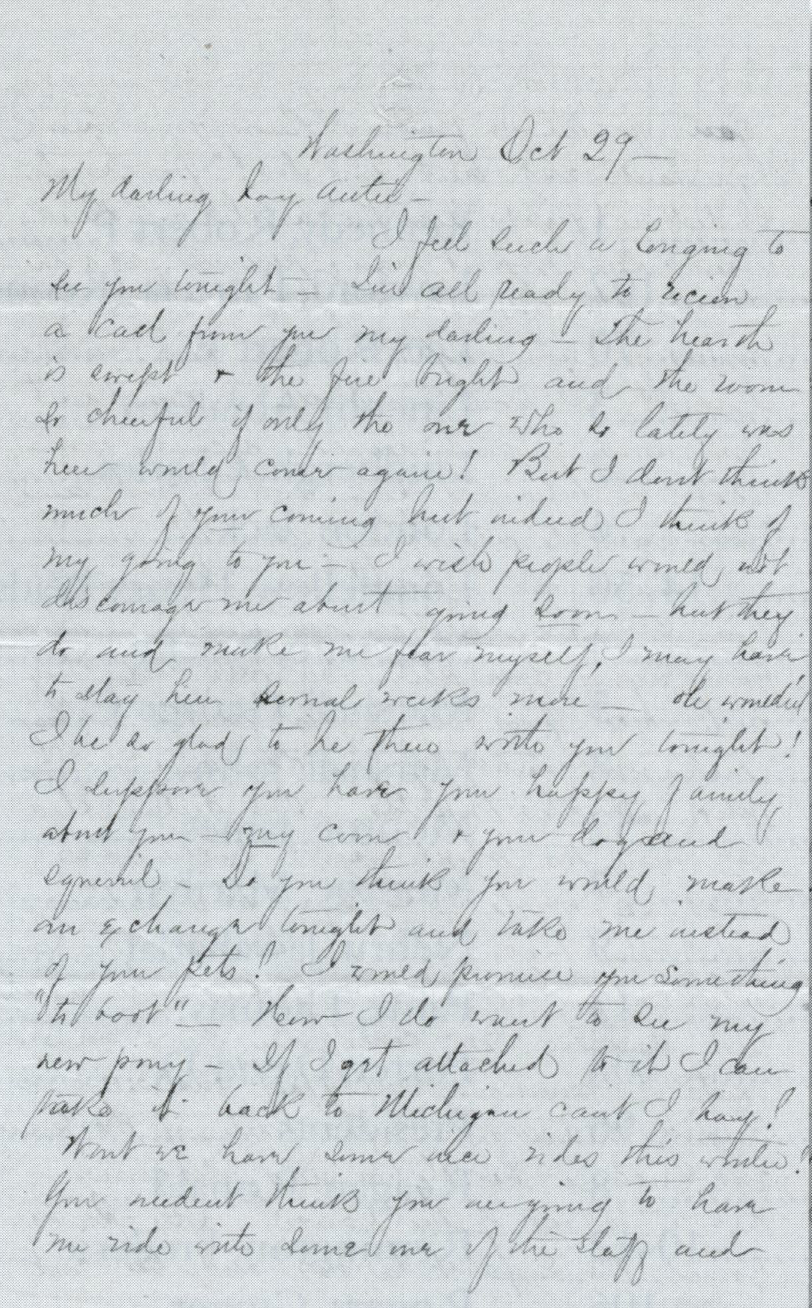 Washington Oct 29 —
My darling boy Autie —
I feel such a longing to
see you tonight — I'm all ready to recieve
a call from you my darling — The hearth
is swept + the fire bright and the room
so cheerful if only the one who so lately was
here would come again! But I dont think
much of your coming but indeed I think of
my going to you — I wish people would not
discourage me about going soon — but they
do and make me fear myself, I may have
to stay here several weeks more — oh would'nt
I be so glad to be there with you tonight!
I suppose you have your happy family
about you — my coon + your dog and
squirril — Do you think you would make
an exchange tonight and take me instead
of your pets! I would promise you something
"to boot" — How I do want to see my
new pony — If I get attached to it I can
take it back to Michigan cant I boy!
Wont we have some nice rides this winter!
You neednt think you are going to have
me ride with some one of the staff and